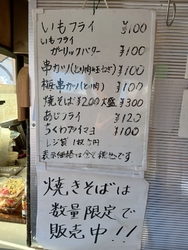 いもフライ ¥100
いもフライ
ガーリックバター ¥100
串カツ(とり肉玉ねぎ) ¥100
梅串カツ(とり肉) ¥100
焼そば ¥200 大盛 ¥300
あじフライ ¥120
ちくわフライ2コ ¥100
レジ袋 1枚5円
表示価格は全て税込です
焼きそばは
数量限定で
販売中!!